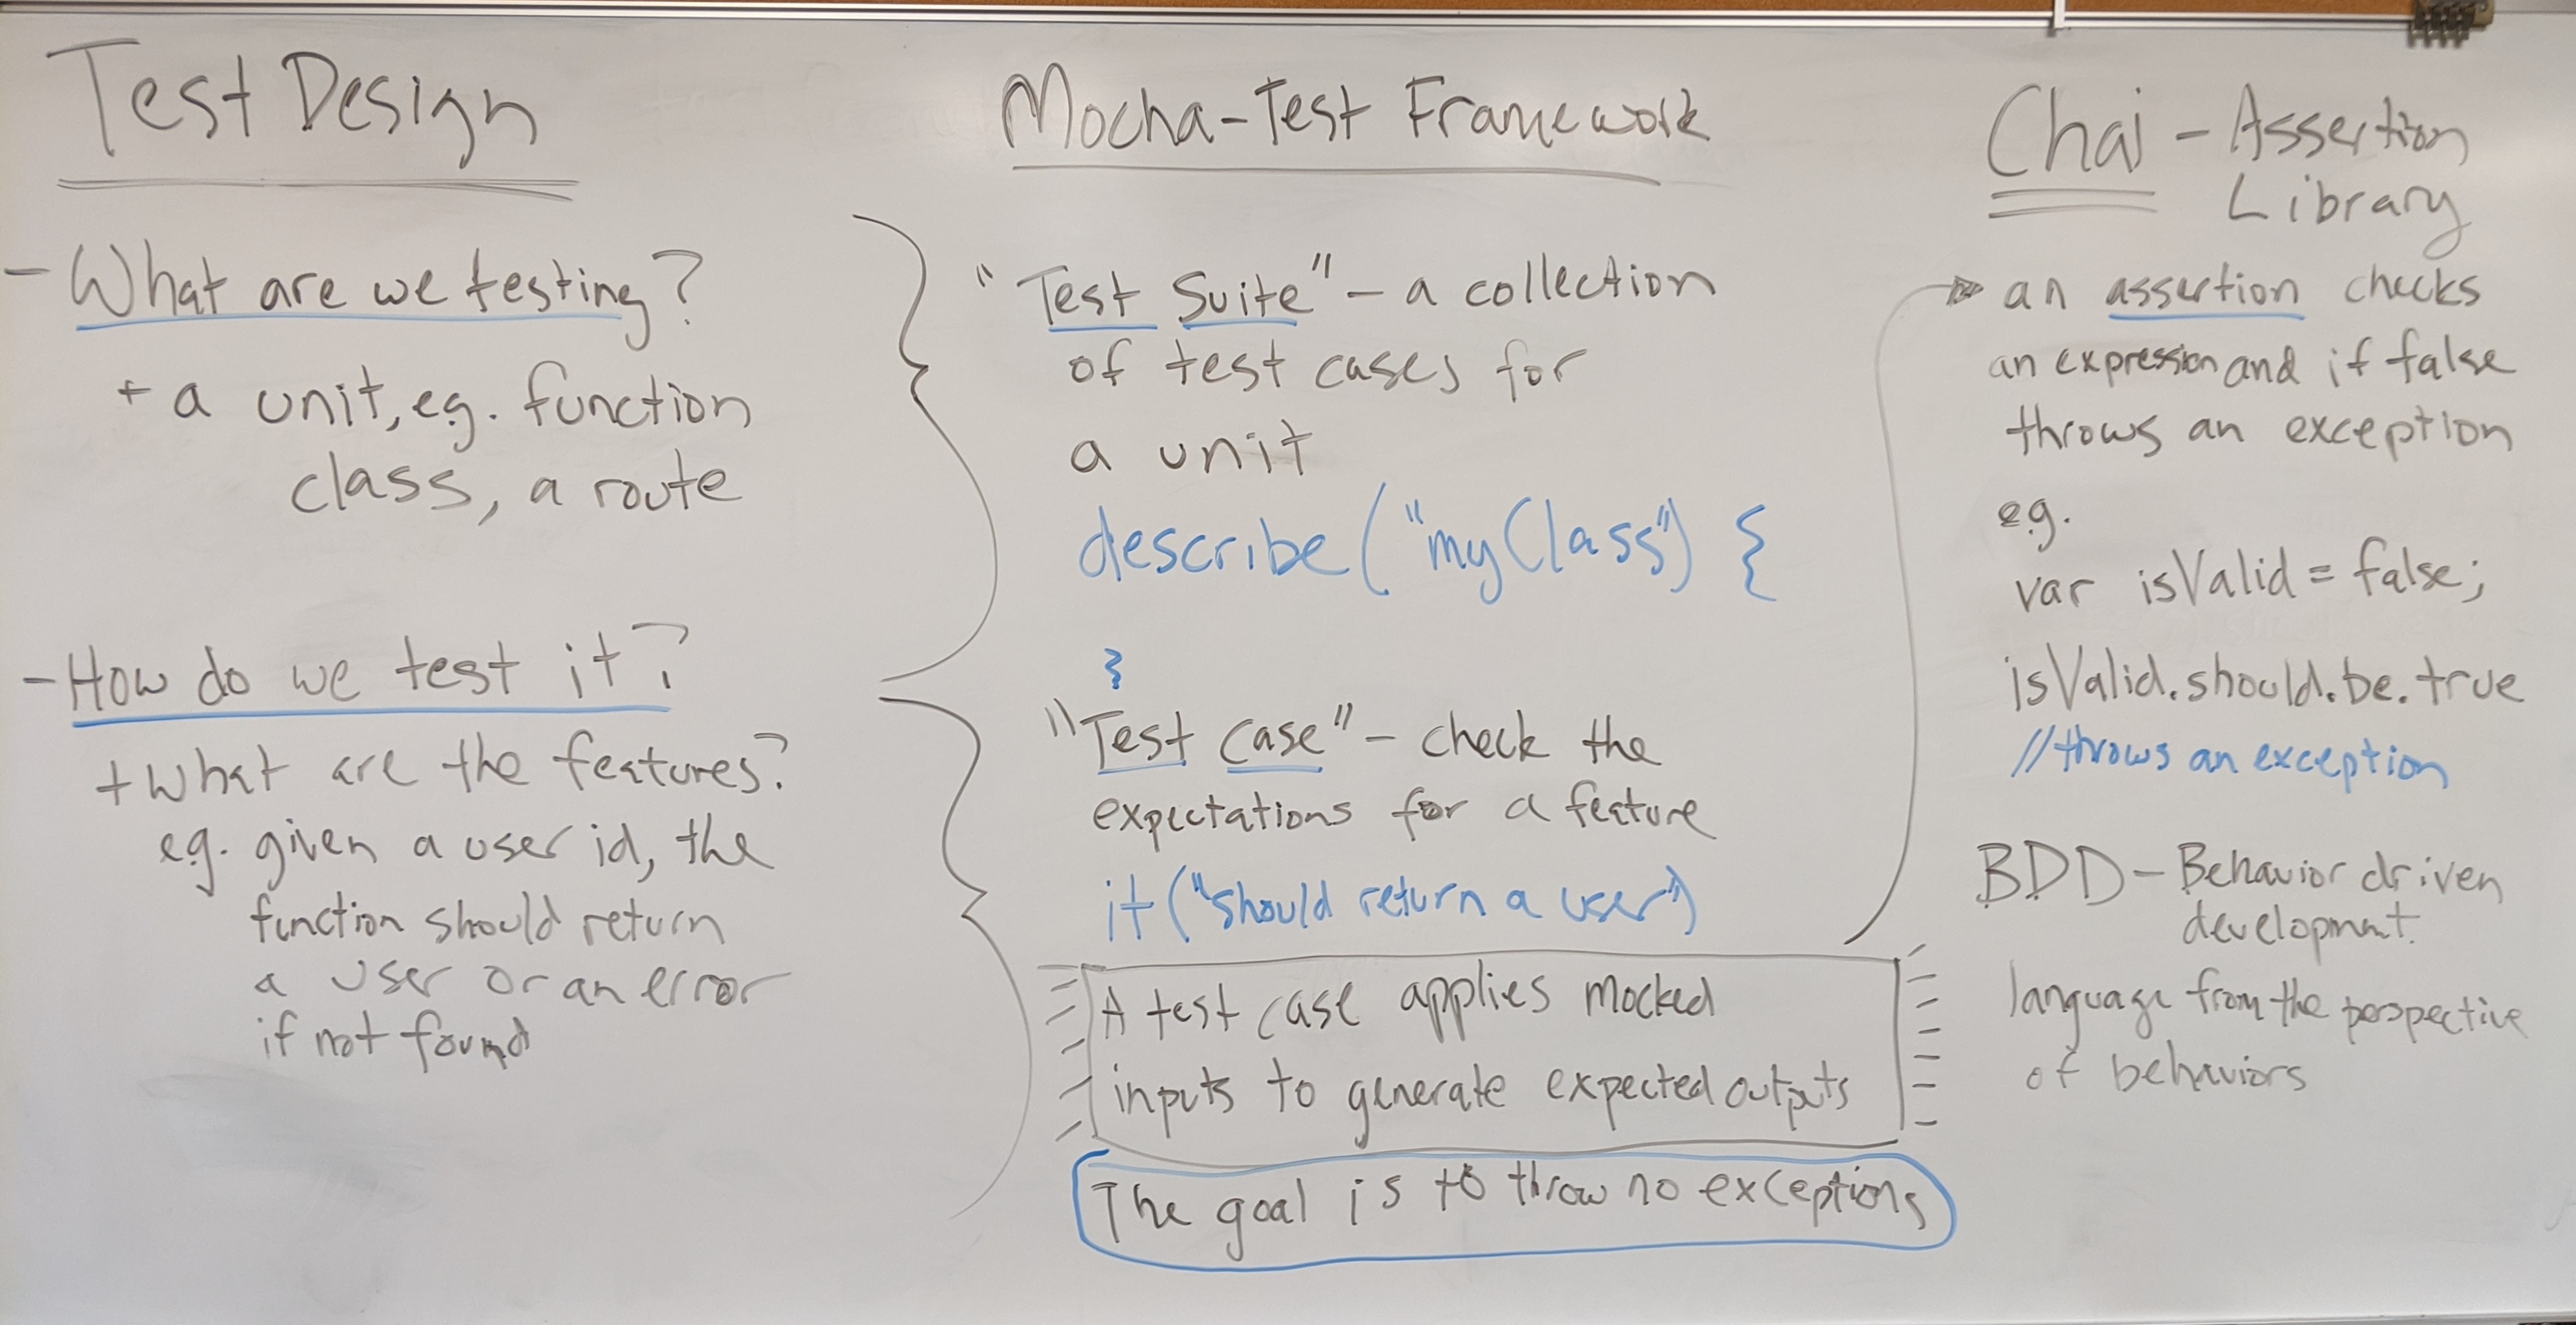 Test Design
- What are we testing?
+ a unit, eg. function
class, a route
- How do we test it?
+ What are the features?
eg. given a user id, the
function should return
a user or an error
if not found
Mocha-Test Framework
"Test Suite" - a collection
of test cases for
a unit
describe("myClass") {
}
"Test case" - check the
expectations for a feature
it("should return a user")
A test case applies mocked
inputs to generate expected outputs
The goal is to throw no exceptions
Chai - Assertion
Library
an assertion checks
an expression and if false
throws an exception
eg.
var isValid = false;
isValid.should.be.true
//throws an exception
BDD - Behavior driven
development.
language from the perspective
of behaviors